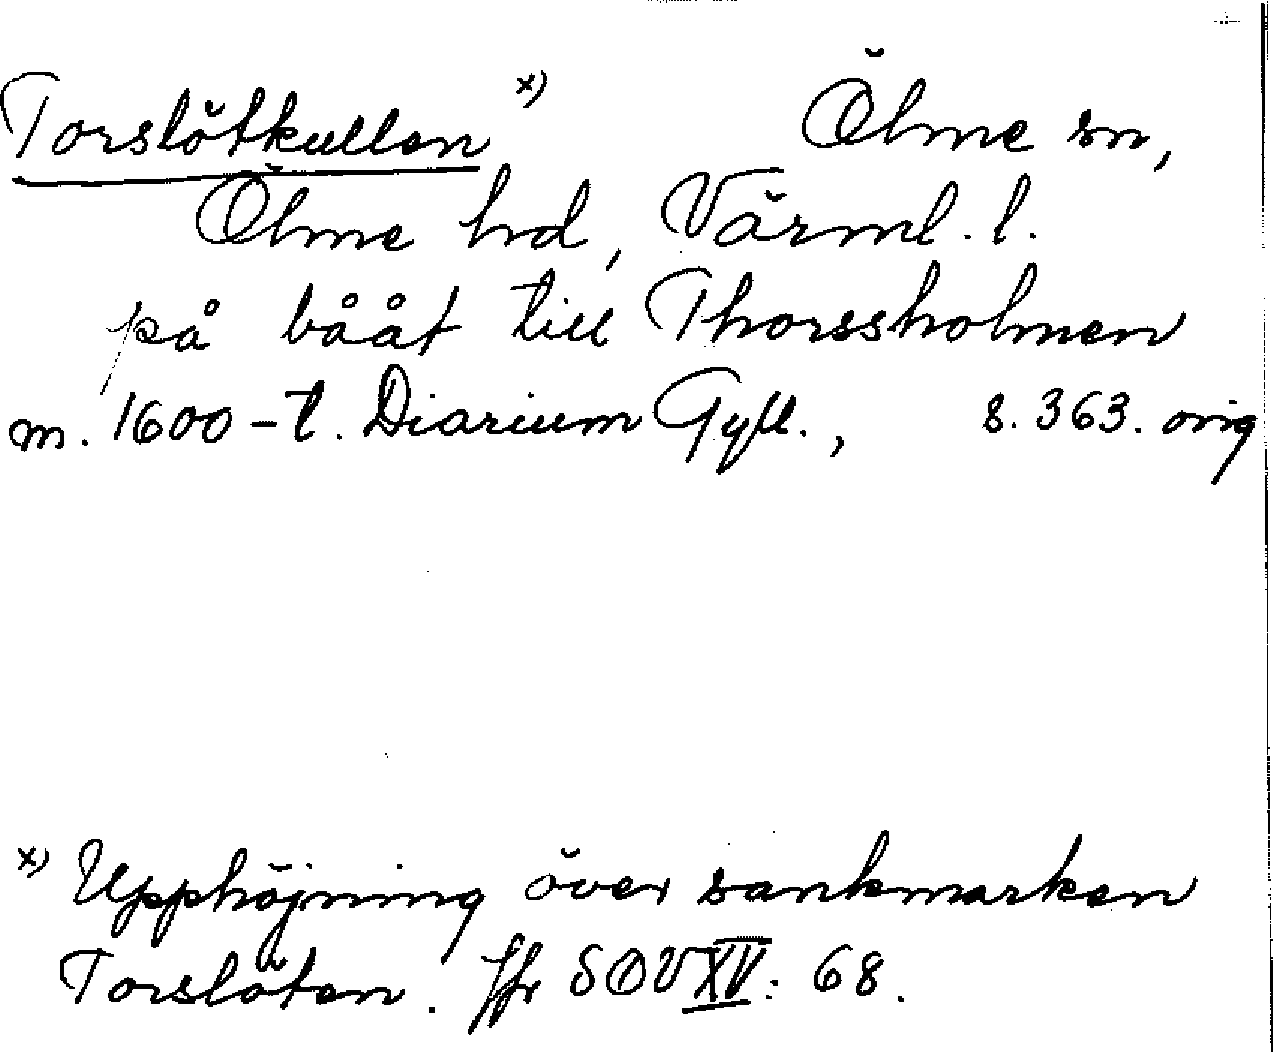 Torslötkullen x) Ölme sn,
Ölme hd, Värml. l.
på bååt till Thorssholmen
m. 1600-t. Diarium Gyll., s. 363. orig
x) Upphöjning över sankmarken
Torslöten. Jfr SOV XV: 68.